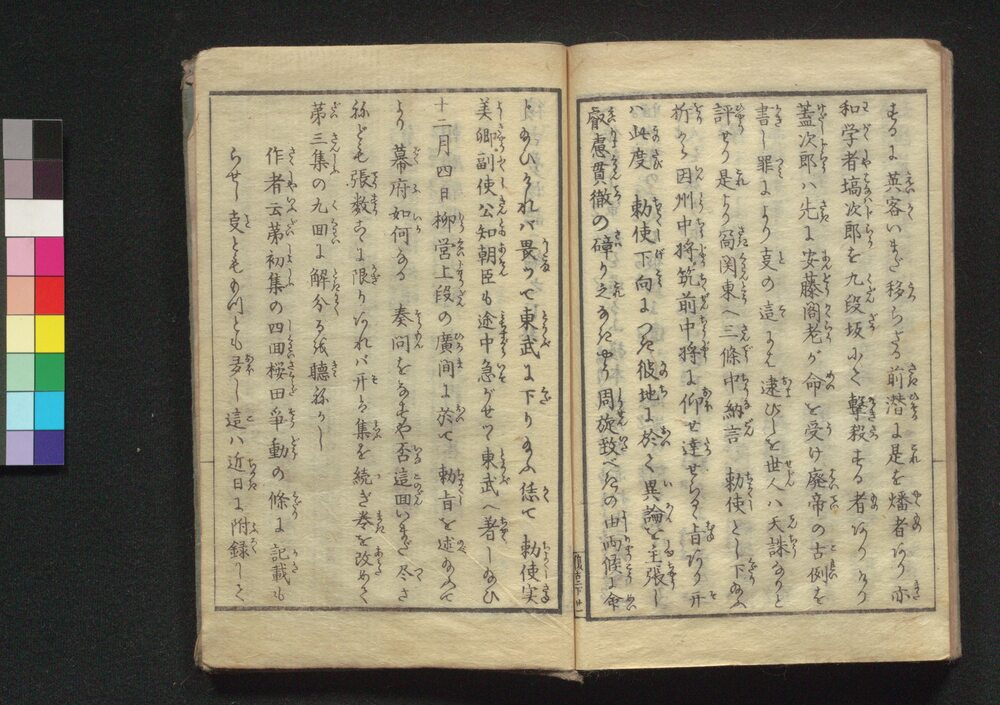 するに英客いまだ移らざる前潜に是を燔者あり亦
和学者塙次郎を九段坂にて撃殺する者ありけり
蓋次郎ハ先に安藤閣老が命を受け廃帝の古例を
書し罪により支の這に逮びしを世人ハ天誅なりと
評せり是より向関東へ三條中納言　勅使として下る
折から因州中将筑前中将に仰せ達せらるゝ旨あり开
ハ此度　勅使下向につき彼地に於て異論を主張し
叡慮貫徹の礙り之なきやう周旋致べきの由両侯に命
じ給ひけれバ畏りて東武に下り給ふ恁て　勅使実
美卿副使公知朝臣も途中急がせつゝ東武へ着し給ひ
十二月四日柳営上段の廣間に於て　勅旨を述給ふて
より　幕府如何なる　奏問をなすや否這回いまだ尽さ
ねども張数こゝに限りあれバ开ハ集を続ぎ巻を改めて
第三集の九回に解分るを聴ねかし
作者云第初集の四回桜田争動の條に記載も
らせし支ともいと多し這ハ近日に附録して